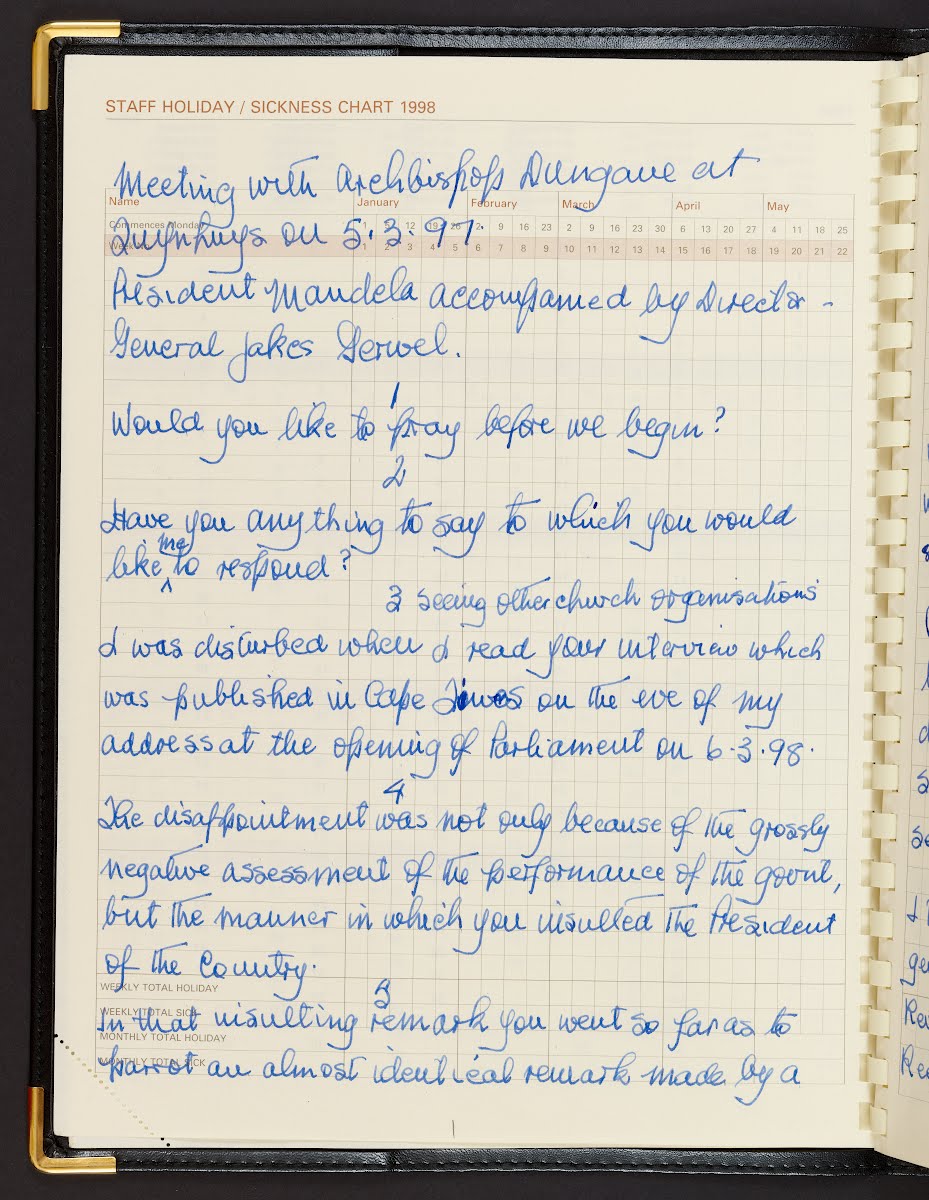 STAFF HOLIDAY / SICKNESS CHART 1998
Meeting with Archbishops Dungane at
Name January February March April May
Tuynhuys on 5.3.97.
Commences Monday 12 19 26 2 9 16 23 2 9 16 23 30 6 13 20 27 4 11 18 25
Week 1 2 3 4 5 6 7 8 9 10 11 12 13 14 15 16 17 18 19 20 21 22
President Mandela accompanied by Director -
General Jakes Gerwel.
1
Would you like to pray before we begin?
2
Have you anything to say to which you would
like me to respond?
3 seeing other church organisations
I was disturbed when I read your interview which
was published in Cape Times on the eve of my
address at the opening of Parliament on 6.3.98.
4
The disappointment was not only because of the grossly
negative assessment of the performance of the govnt,
but the manner in which you insulted the President
of the Country.
WEEKLY TOTAL HOLIDAY
5
WEEKLY TOTAL SICK
In that insulting remark you went so far as to
MONTHLY TOTAL HOLIDAY
MONTHLY TOTAL SICK
parrot an almost identical remark made by a